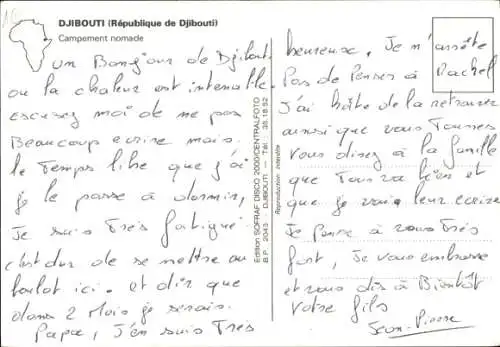 16
DJIBOUTI (République de Djibouti)
Campement nomade
un Bonjour de Djibouti
ou la chaleur est intenable.
excusez moi de ne pas
Beaucoup ecrire mais
le Temps libre que j'ai
je le passe à dormir,
Je suis Très fatigué
c'est dur de se mettre au
boulot ici. et dire que
dans 2 Mois je serais
Papa, j'en suis Très
Edition SOFRAF DISCO 2000/CENTRALFOTO
B.P. 2043 - DJIBOUTI - Tél. : 35.18.52
Reproduction interdite
heureuse, Je n'arrête
Pas de Penser à Rachel
J'ai hâte de la retrouver
ainsi que vous Tousses
Vous direz à la famille
que Tout va bien et
que je vais leur ecrire
Je Pense à vous Très
fort, Je vous embrasse
et vous dis à Bientôt
Votre fils
Jean-Pierre